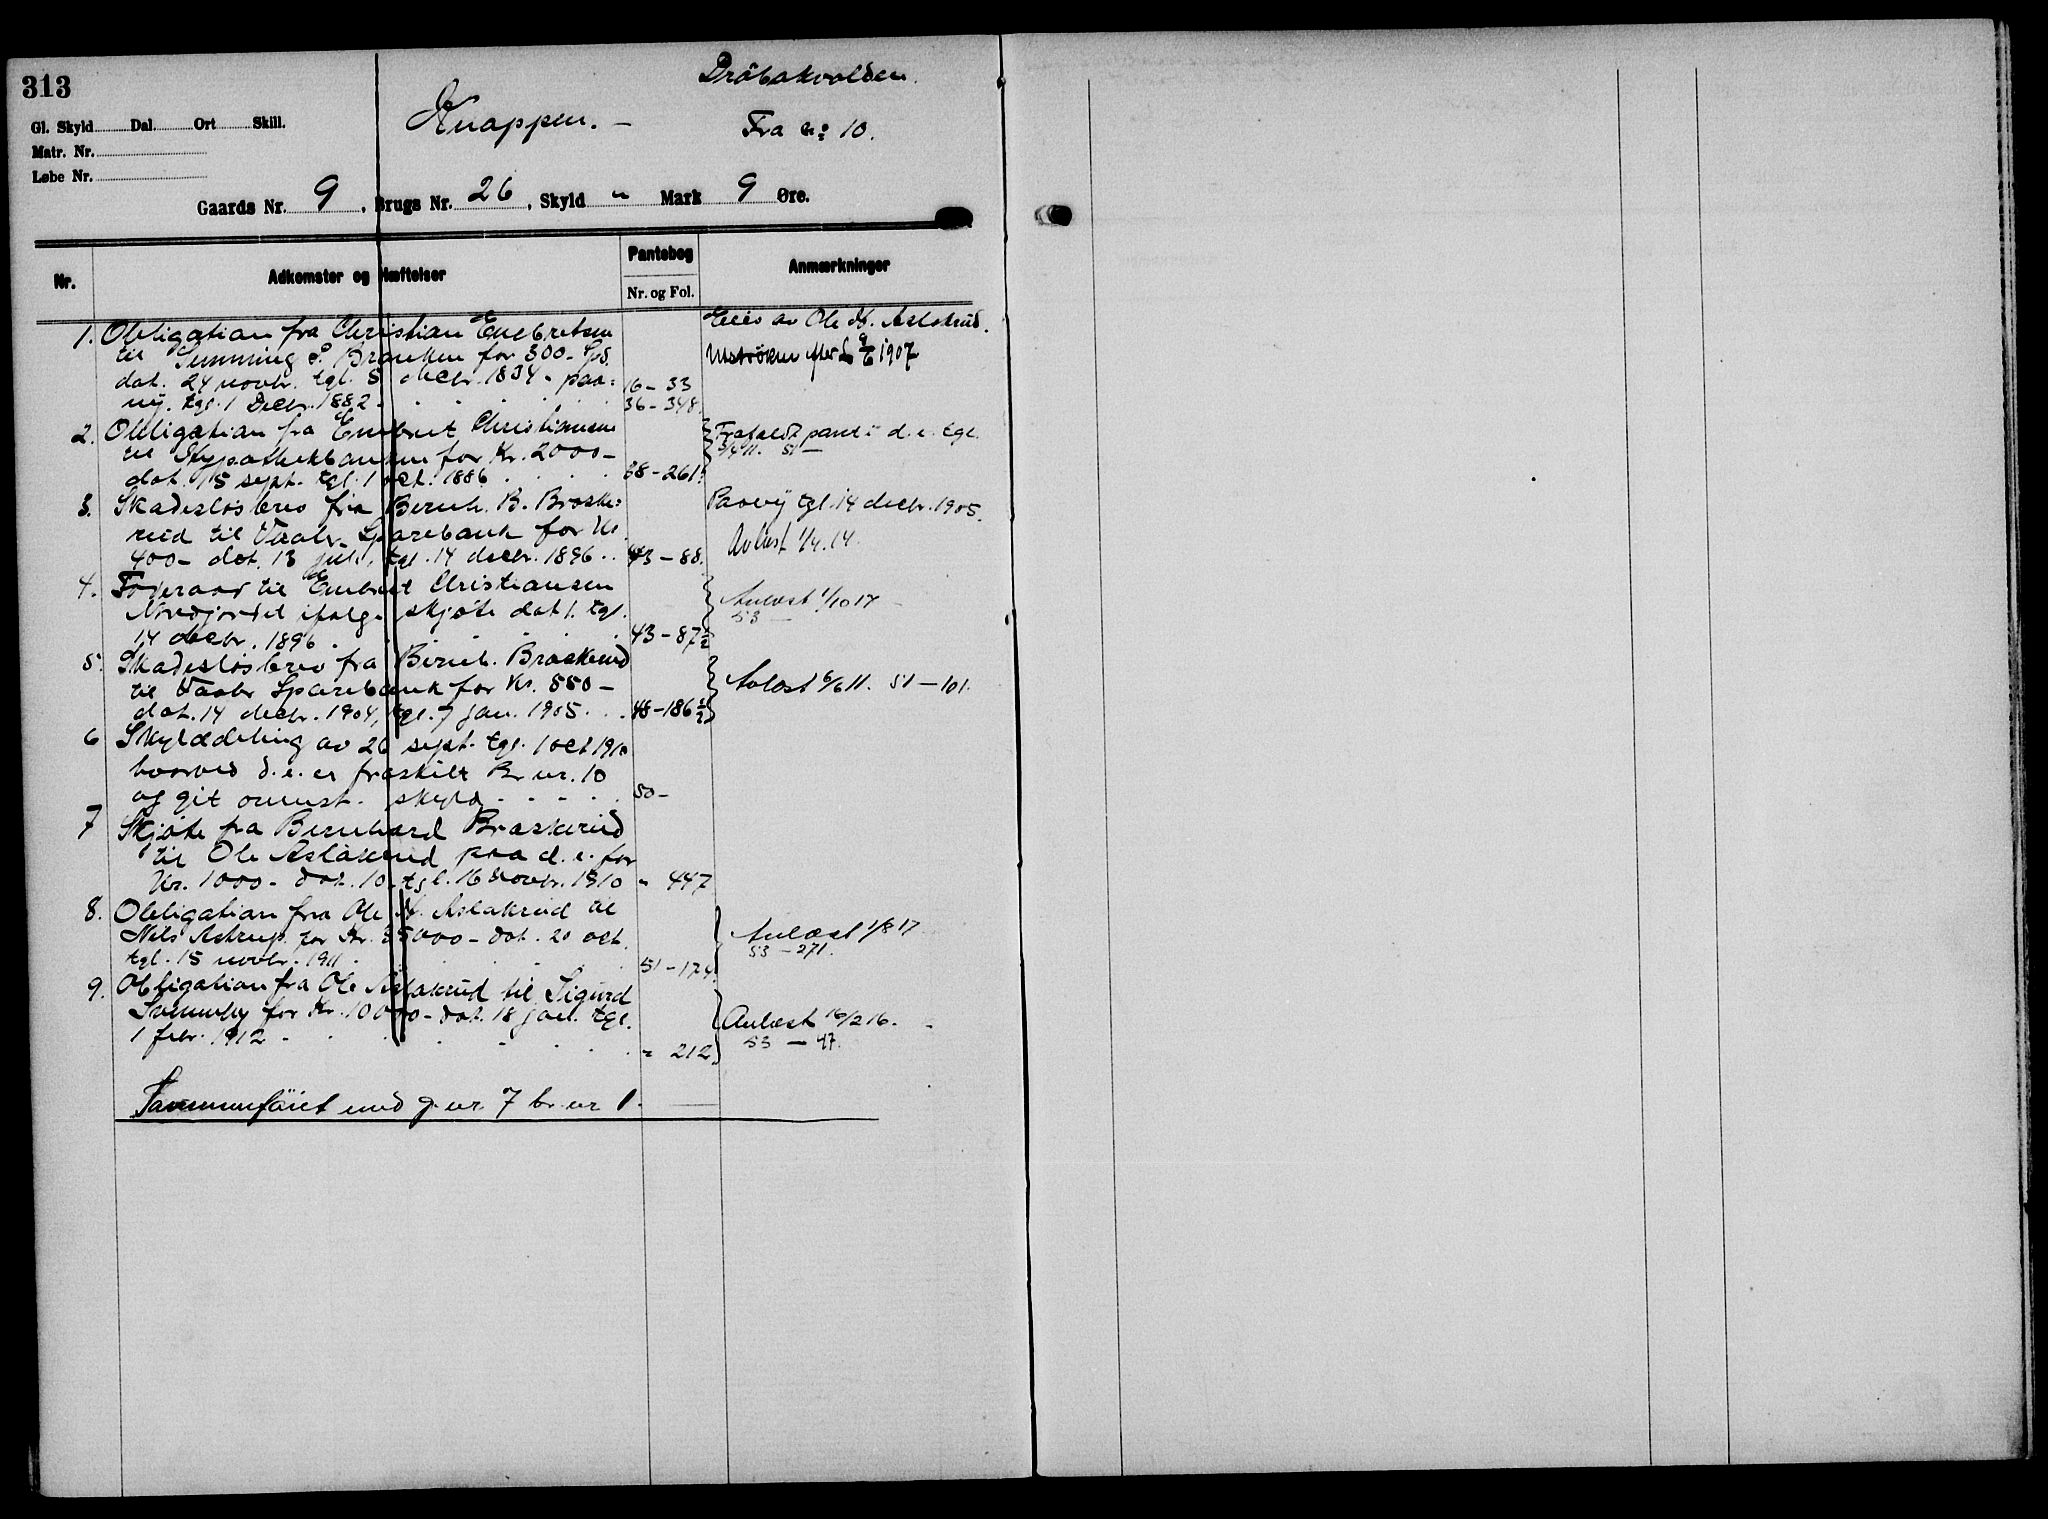 313
Dröbakvolden.
Gl. Skyld Dal. Ort Skill.
Knappen. —
Fra no 10.
Matr. Nr.
Løbe Nr.
Gaards Nr. 9, Brugs Nr. 26, Skyld " Mark 9 Øre.
Nr. Adkomster og Hæftelser Pantebog Anmærkninger
Nr. og Fol.
1. Obligation fra Christian Enebretsen Eies av Ole H. Aslakrud.
til for 300 - Spd. Utströken efter L 9/6 1907
dat. 24 novbr. tgl. 5 decbr. 1834 - paa= 16 - 33
ny. tgl. 1 Decbr. 1882 - 36 - 348.
2. Obligation fra Enebret Christiansen Frafaldt pant i d. e. tgl.
til Hypothekbanken for Kr. 2000 - 3/4 11. 51 —
dat. 15 sept. tgl. 1 oct. 1886. 38 - 261.
3. Skadesløsbrev fra Bernh. B. Braske= Paany tgl. 14 decbr. 1905.
rud til Vaaler Sparebank for Kr.
400 - dat. 13 juli, tgl. 14 decbr. 1896. 43 - 88. Avlæst 1/4.14.
4. Foderaad til Enebret Christiansen
Nordjordet ifølge skjøte dat. tgl. Avlæst 1/10 17 —
53 —
14 decbr. 1896. 43 - 87 1/2
5. Skadesløsbrev fra Bernh. Braskerud
til Vaaler Sparebank for Kr. 550 - Avlæst 6/6 11. 51 - 101.
dat. 14 decbr. 1904, tgl. 7 jan. 1905. 48 - 186 1/2
6 Skylddeling av 26 sept. tgl. 1 oct 1910
hvorved d. e. er fraskilt Br. nr. 10
og git omenst. skyld 50 -
7 Skjöte fra Bernhard Braskerud
til Ole Aslakrud paa d. e. for
Kr. 1000 - dat. 10. tgl. 16 novbr. 1910 " 447
8. Obligation fra Ole H. Aslakrud til
Nils Astrup for Kr. 35000 - dat. 20 oct. Avlæst 1/8 17
53 - 271.
tgl. 15 novbr. 1911. 51 - 174.
9. Obligation fra Ole Aslakrud til Sigurd
Svenneby for Kr. 10000 - dat. 18 jan. tgl. Avlæst 16/2 16. -
1 febr. 1912 - " 212 53 — 47.
Sammenföiet med g. nr. 7 br. nr 1.